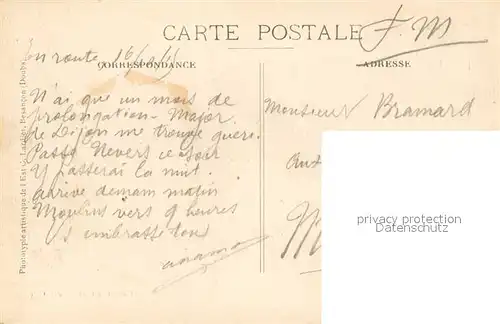 CARTE POSTALE
F. M
CORRESPONDANCE
ADRESSE
En route 16/
N'ai que un mois de
prolongation - Major
de Dijon me trouve guéri.
Passe Nevers ce soir
Y passerai la nuit.
arrive demain matin
Moulins vers 9 heures
embrasse tous
Monsieur Bramard
privacy protection
Phototypie artistique de l'Est C. Lardier, Besançon (Doubs)